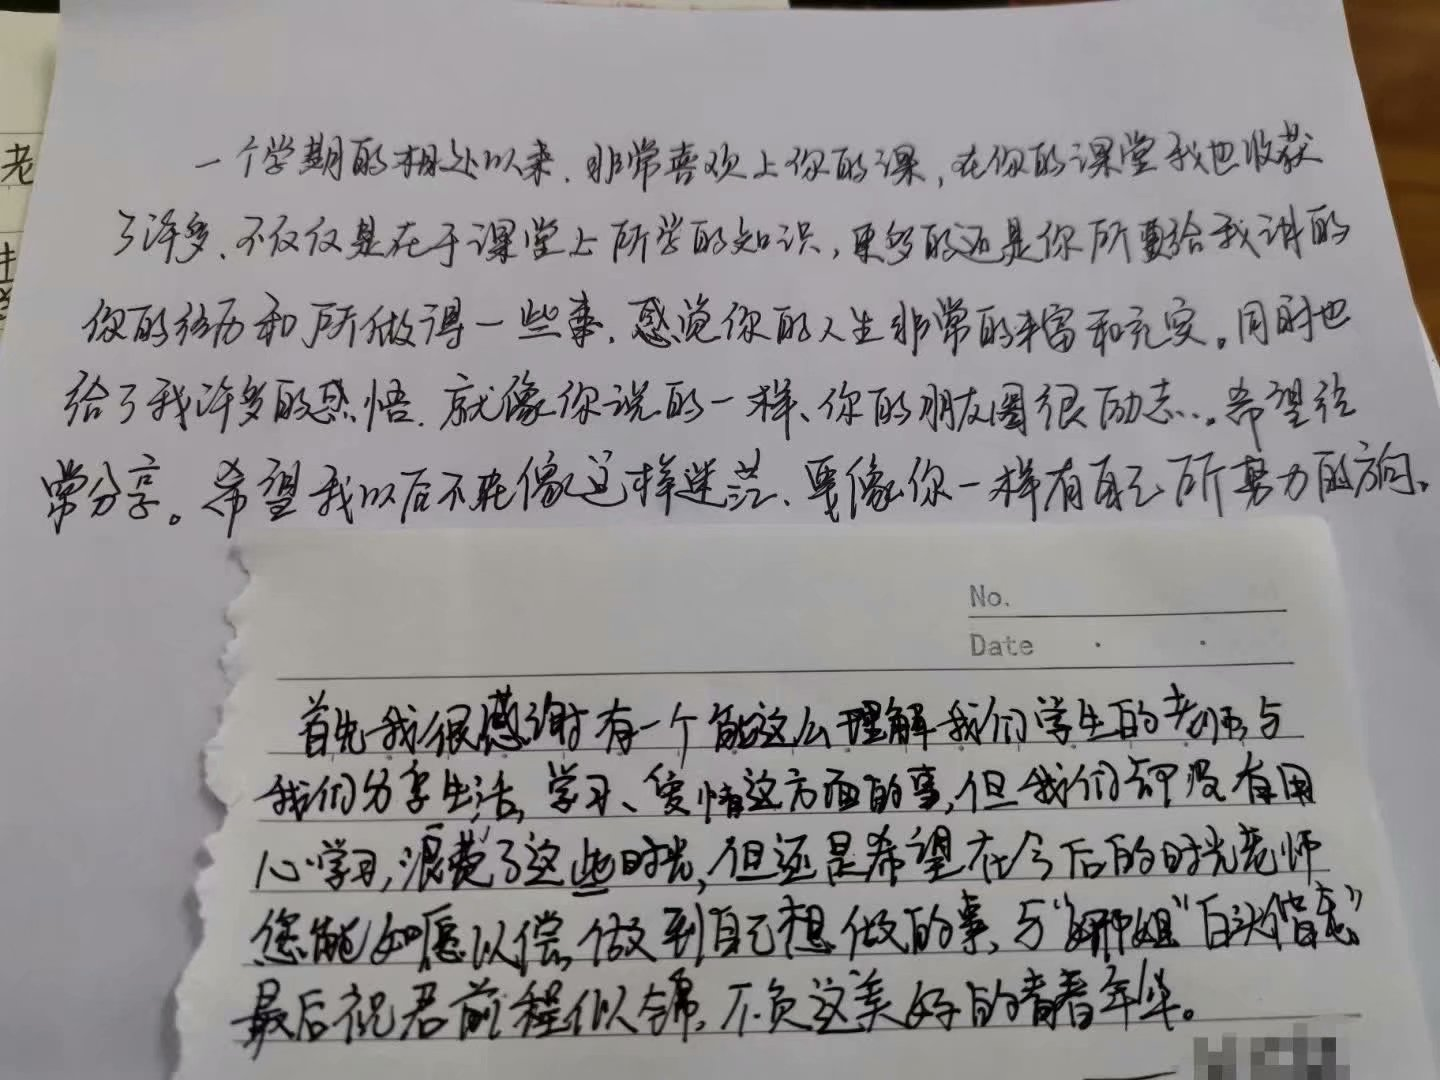 一个学期的相处以来，非常喜欢上你的课，在你的课堂我也收获
了许多，不仅仅是在于课堂上所学的知识，更多的还是你所要给我讲的
你的经历和所做得一些事，感觉你的人生非常的丰富和充实。同时也
给了我许多的感悟，就像你说的一样、你的朋友圈很励志...。希望经
常分享。希望我以后不在像这样迷茫、要像你一样有自己所努力的方向。
老
No.
Date
首先我很感谢有一个能这么理解我们学生的老师与
我们分享生活，学习、爱情这方面的事，但我们却没有用
心学习，浪费了这些时光，但还是希望在今后的时光老师
您能如愿以偿，做到自己想做的事，与“娜姐”白头偕老”
最后祝君前程似锦，不负这美好的青春年华。